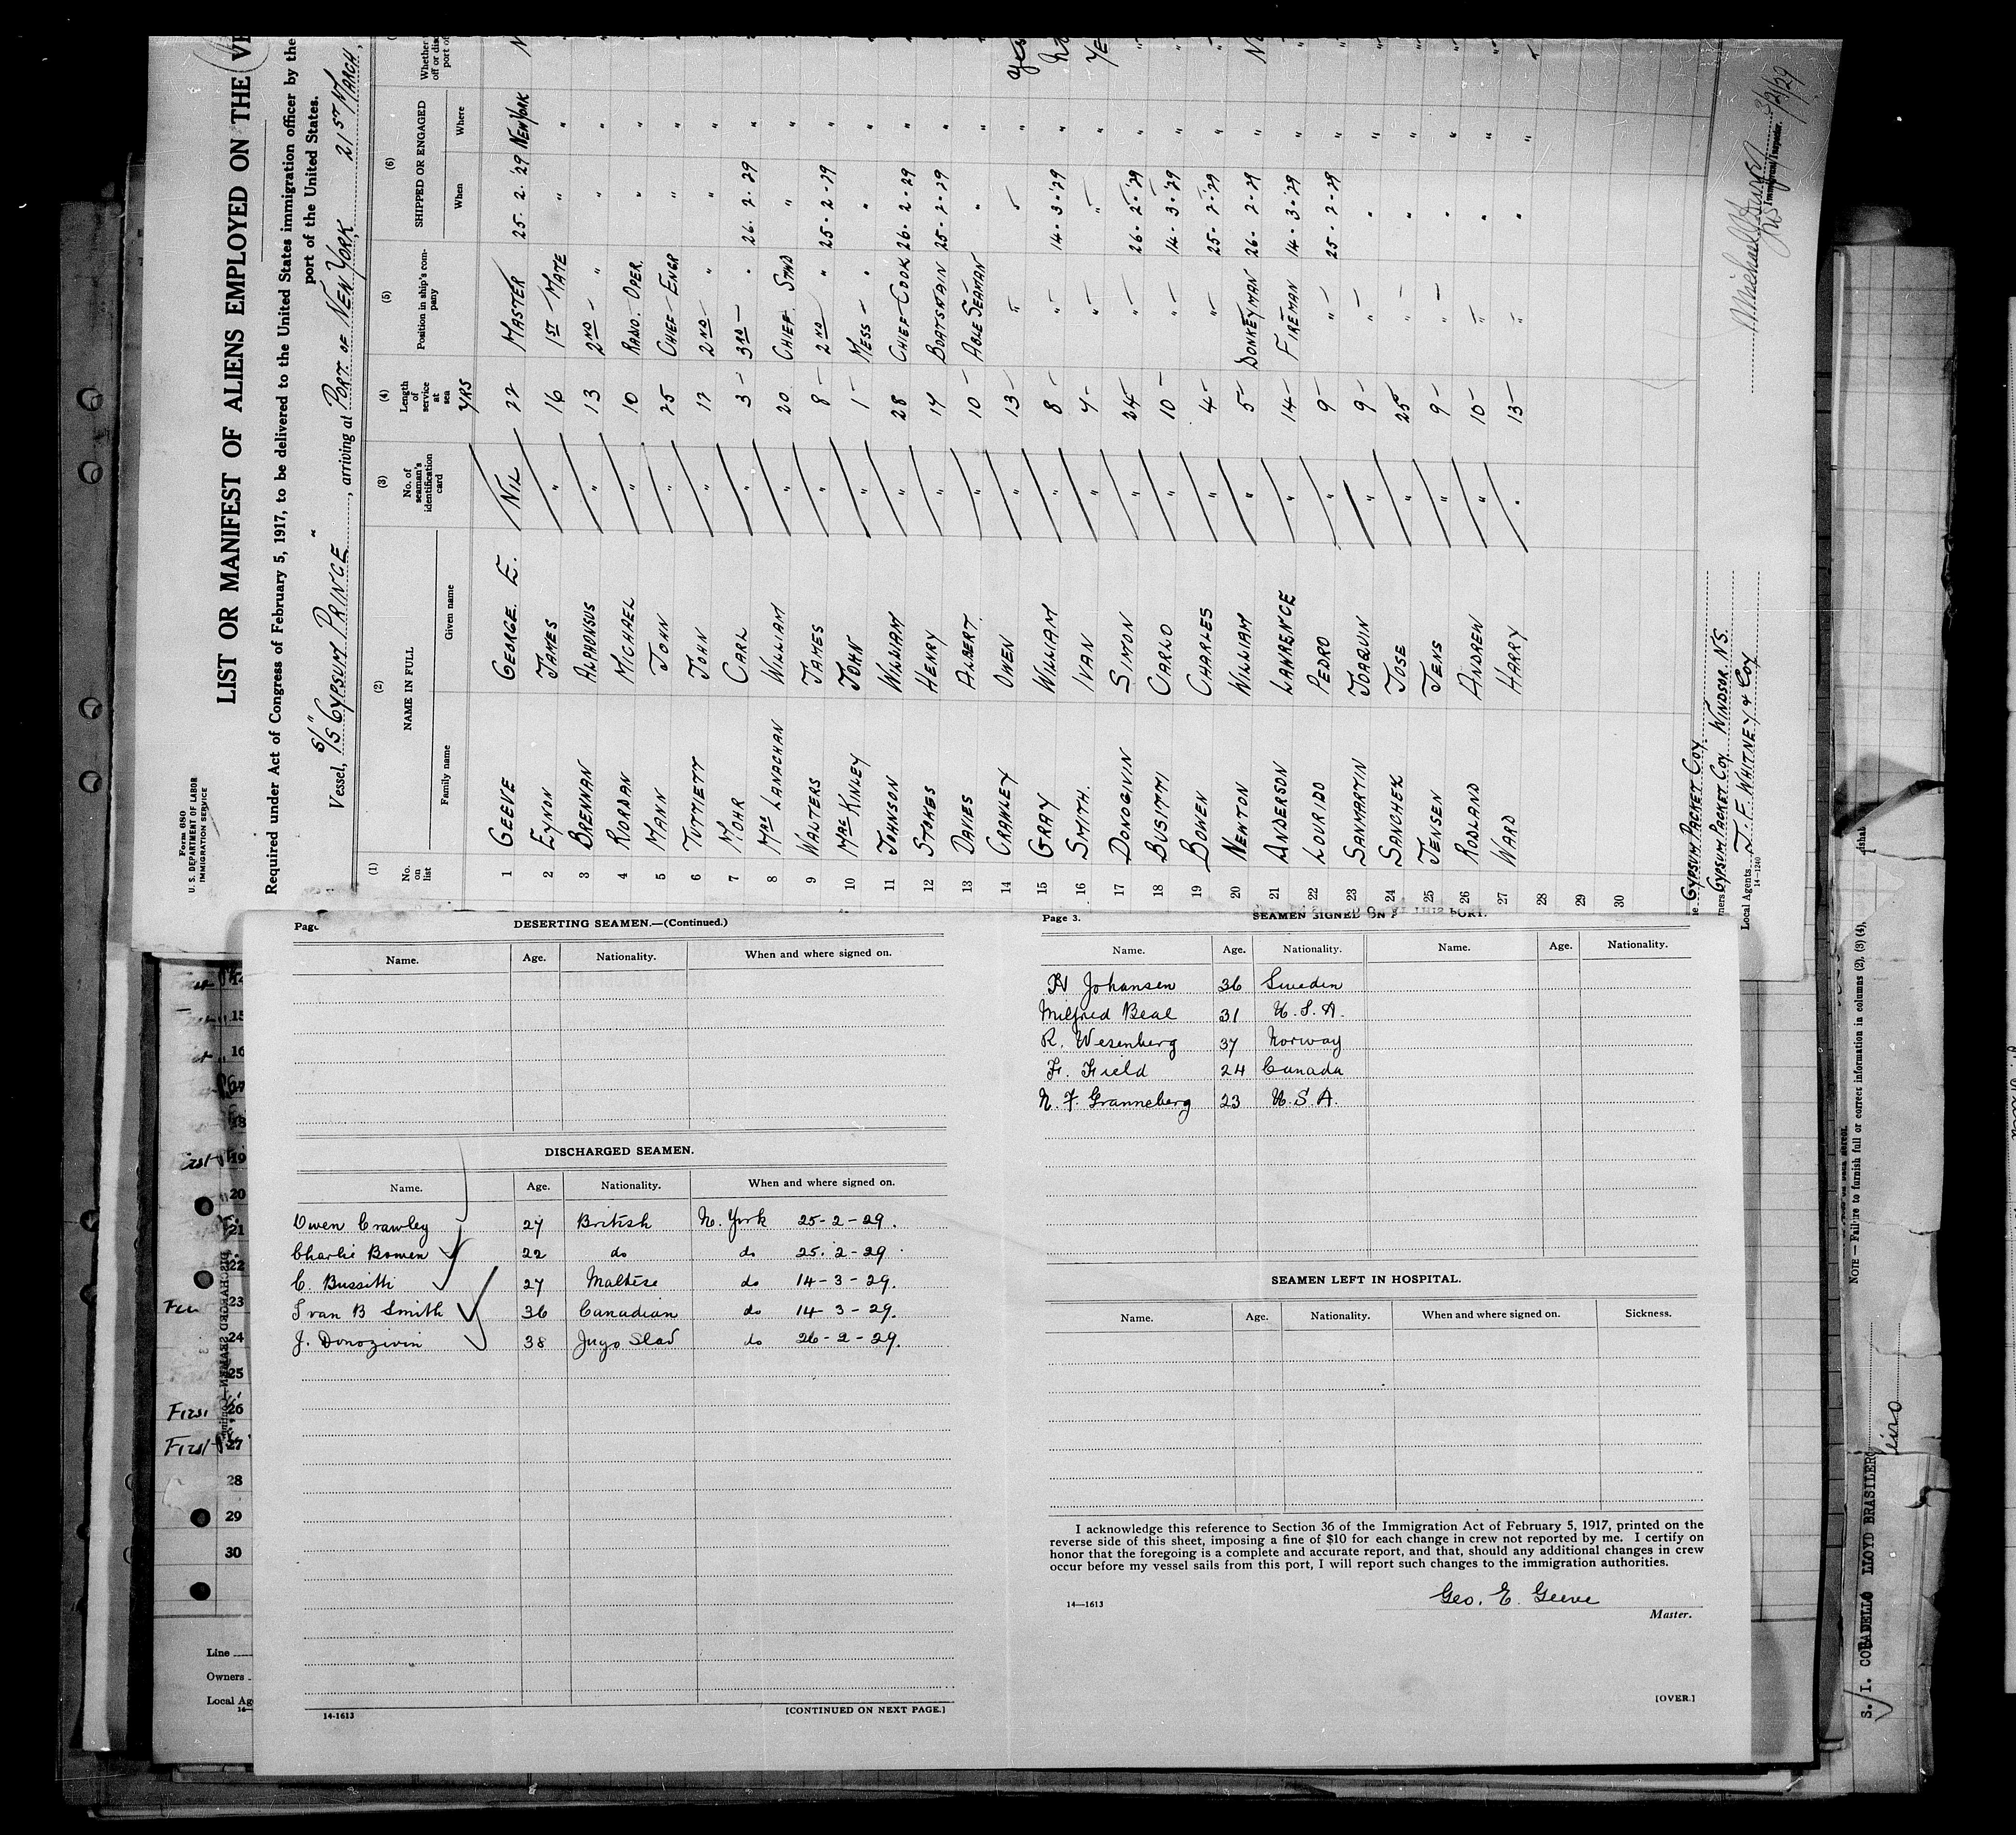 Form 680
U. S. DEPARTMENT OF LABOR
IMMIGRATION SERVICE
LIST OR MANIFEST OF ALIENS EMPLOYED ON THE
Required under Act of Congress of February 5, 1917, to be delivered to the United States immigration officer by the
port of the United States.
Vessel, S/S "GYPSUM PRINCE", arriving at PORT OF NEW YORK, 21ST MARCH,
(1) (2) (3) (4) (5) (6)
No. on list NAME IN FULL No. of seaman's identification card Length of service at sea Position in ship's company SHIPPED OR ENGAGED
Family name Given name YRS When Where
1 GEEVE GEORGE E. NIL 22 MASTER 25. 2. '29 NEW YORK
2 EYNON JAMES " 16 1ST MATE " "
3 BRENNAN ALPHONSUS " 13 2ND " " "
4 RIORDAN MICHAEL " 10 RADIO. OPER. " "
5 MANN JOHN " 25 CHIEF ENGR " "
6 TUTTIETT JOHN " 17 2ND " " "
7 MOHR CARL " 3 3RD " 26. 2. 29 "
8 Mac LANAGHAN WILLIAM " 20 CHIEF. STWD " "
9 WALTERS JAMES " 8 2ND " 25. 2. 29 "
10 Mac KINLEY JOHN " 1 MESS " " "
11 JOHNSON WILLIAM " 28 CHIEF COOK 26. 2. 29 "
12 STOKES HENRY " 14 BOATSWAIN 25. 2. 29 "
13 DAVIES ALBERT " 10 ABLE SEAMAN " "
14 CRAWLEY OWEN " 13 " " "
15 GRAY WILLIAM " 8 " 14. 3. '29 "
16 SMITH. IVAN " 4 " " "
17 DONOGIVIN SIMON " 24 " 26. 2. '29 "
18 BUSITTI CARLO " 10 " 14. 3. '29 "
19 BOWEN CHARLES " 4 " 25. 2. '29 "
20 NEWTON WILLIAM " 5 DONKEYMAN 26. 2. 29 "
21 ANDERSON LAWRENCE " 14 FIREMAN 14. 3. '29 "
22 LOURIDO PEDRO " 9 " 25. 2. 29 "
23 SANMARTIN JOAQUIN " 9 " " "
24 SANCHEK JOSE " 25 " " "
25 JENSEN JENS " 9 " " "
26 RODLAND ANDREW " 10 " " "
27 WARD HARRY " 13 " " "
28
29
30
GYPSUM PACKET COY.
GYPSUM PACKET COY. WINDSOR. NS.
Local Agents J. F. WHITNEY & COY
14-1240
Immigrant Inspector.
3/21/29
DESERTING SEAMEN.—(Continued.)
Name. Age. Nationality. When and where signed on.
DISCHARGED SEAMEN.
Name. Age. Nationality. When and where signed on.
Owen Crawley 27 British N. York 25-2-29.
Charlie Bowen 22 do do 25.2-29.
C. Bussitti 27 Maltese do 14-3-29.
Ivan B Smith 36 Canadian do 14-3-29.
J. Donozivin 38 Jugo Slav do 26-2-29.
14-1613
[CONTINUED ON NEXT PAGE.]
Page 3.
SEAMEN SIGNED ON
Name. Age. Nationality. Name. Age. Nationality.
H Johansen 36 Sweden
Milfred Beal 31 U.S.A.
R. Wesenberg 37 Norway
F. Field 24 Canada
N. F. Granneberg 23 U.S.A.
SEAMEN LEFT IN HOSPITAL.
Name. Age. Nationality. When and where signed on. Sickness.
I acknowledge this reference to Section 36 of the Immigration Act of February 5, 1917, printed on the
reverse side of this sheet, imposing a fine of $10 for each change in crew not reported by me. I certify on
honor that the foregoing is a complete and accurate report, and that, should any additional changes in crew
occur before my vessel sails from this port, I will report such changes to the immigration authorities.
Geo. E. Geeve
14—1613
Master.
[OVER.]
15
16
18
19
20
21
22
23
24
25
First 26
First 27
28
29
30
Line
Owners
Local Ag
NOTE — Failure to furnish full or correct information in columns (2), (3) (4),
LLOYD BRASILERO